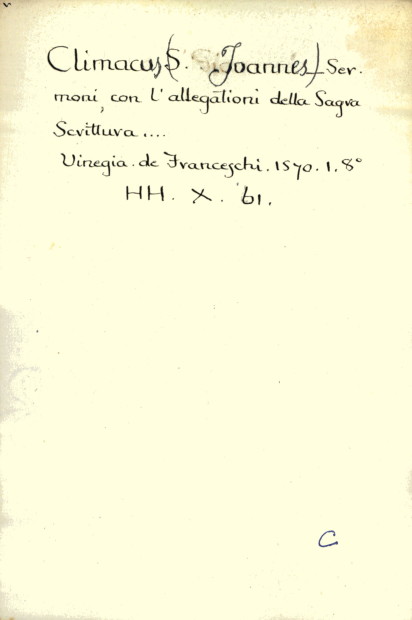 Climacus (S. Joannes) Ser-
moni, con l'allegationi della Sagra
Scrittura....
Vinegia. de Franceschi. 1570. 1. 8°
HH. X. 61.
C